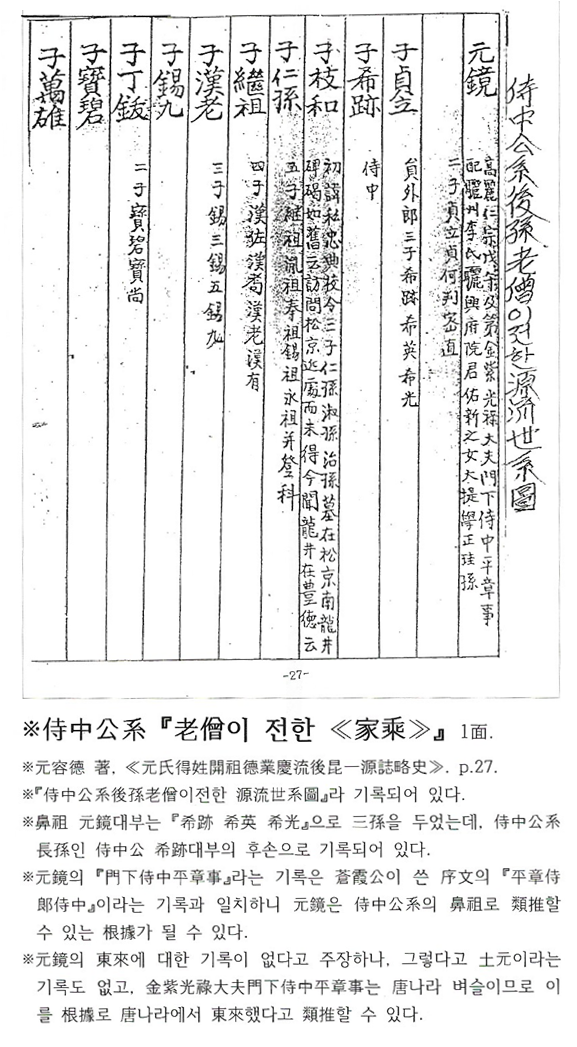 侍中公系後孫老僧이전한 源流世系圖
元鏡
高麗仁宗戊 及第金紫光祿大夫門下侍中平章事
配驪州李氏驪興府院君佑新之女大提學正珪孫
二子貞立貞何判 直
子貞立
員外郎三子希跡希英希光
子希跡
侍中
子枝和
初諱私忠典校令三子仁孫淑孫治孫墓在松京南龍井
碑碣如舊云訪問松京近處而未得今聞龍井在豊德云
子仁孫
五子繼祖 祖奉祖錫祖永祖并登科
子繼祖
四子漢 漢 漢老漢有
子漢老
三子錫三錫五錫九
子錫九
子丁鈑
二子寶碧寶尚
子寶碧
子萬雄
-27-
※侍中公系『老僧이 전한 ≪家乘≫』 1面.
※元容德 著, ≪元氏得姓開祖德業慶流後昆一源誌略史≫. p.27.
※『侍中公系後孫老僧이전한 源流世系圖』라 기록되어 있다.
※鼻祖 元鏡대부는 『希跡 希英 希光』으로 三孫을 두었는데, 侍中公系
長孫인 侍中公 希跡대부의 후손으로 기록되어 있다.
※元鏡의 『門下侍中平章事』라는 기록은 蒼霞公이 쓴 序文의 『平章侍
郎侍中』이라는 기록과 일치하니 元鏡은 侍中公系의 鼻祖로 類推할
수 있는 根據가 될 수 있다.
※元鏡의 東來에 대한 기록이 없다고 주장하나, 그렇다고 土元이라는
기록도 없고, 金紫光祿大夫門下侍中平章事는 唐나라 벼슬이므로 이
를 根據로 唐나라에서 東來했다고 類推할 수 있다.